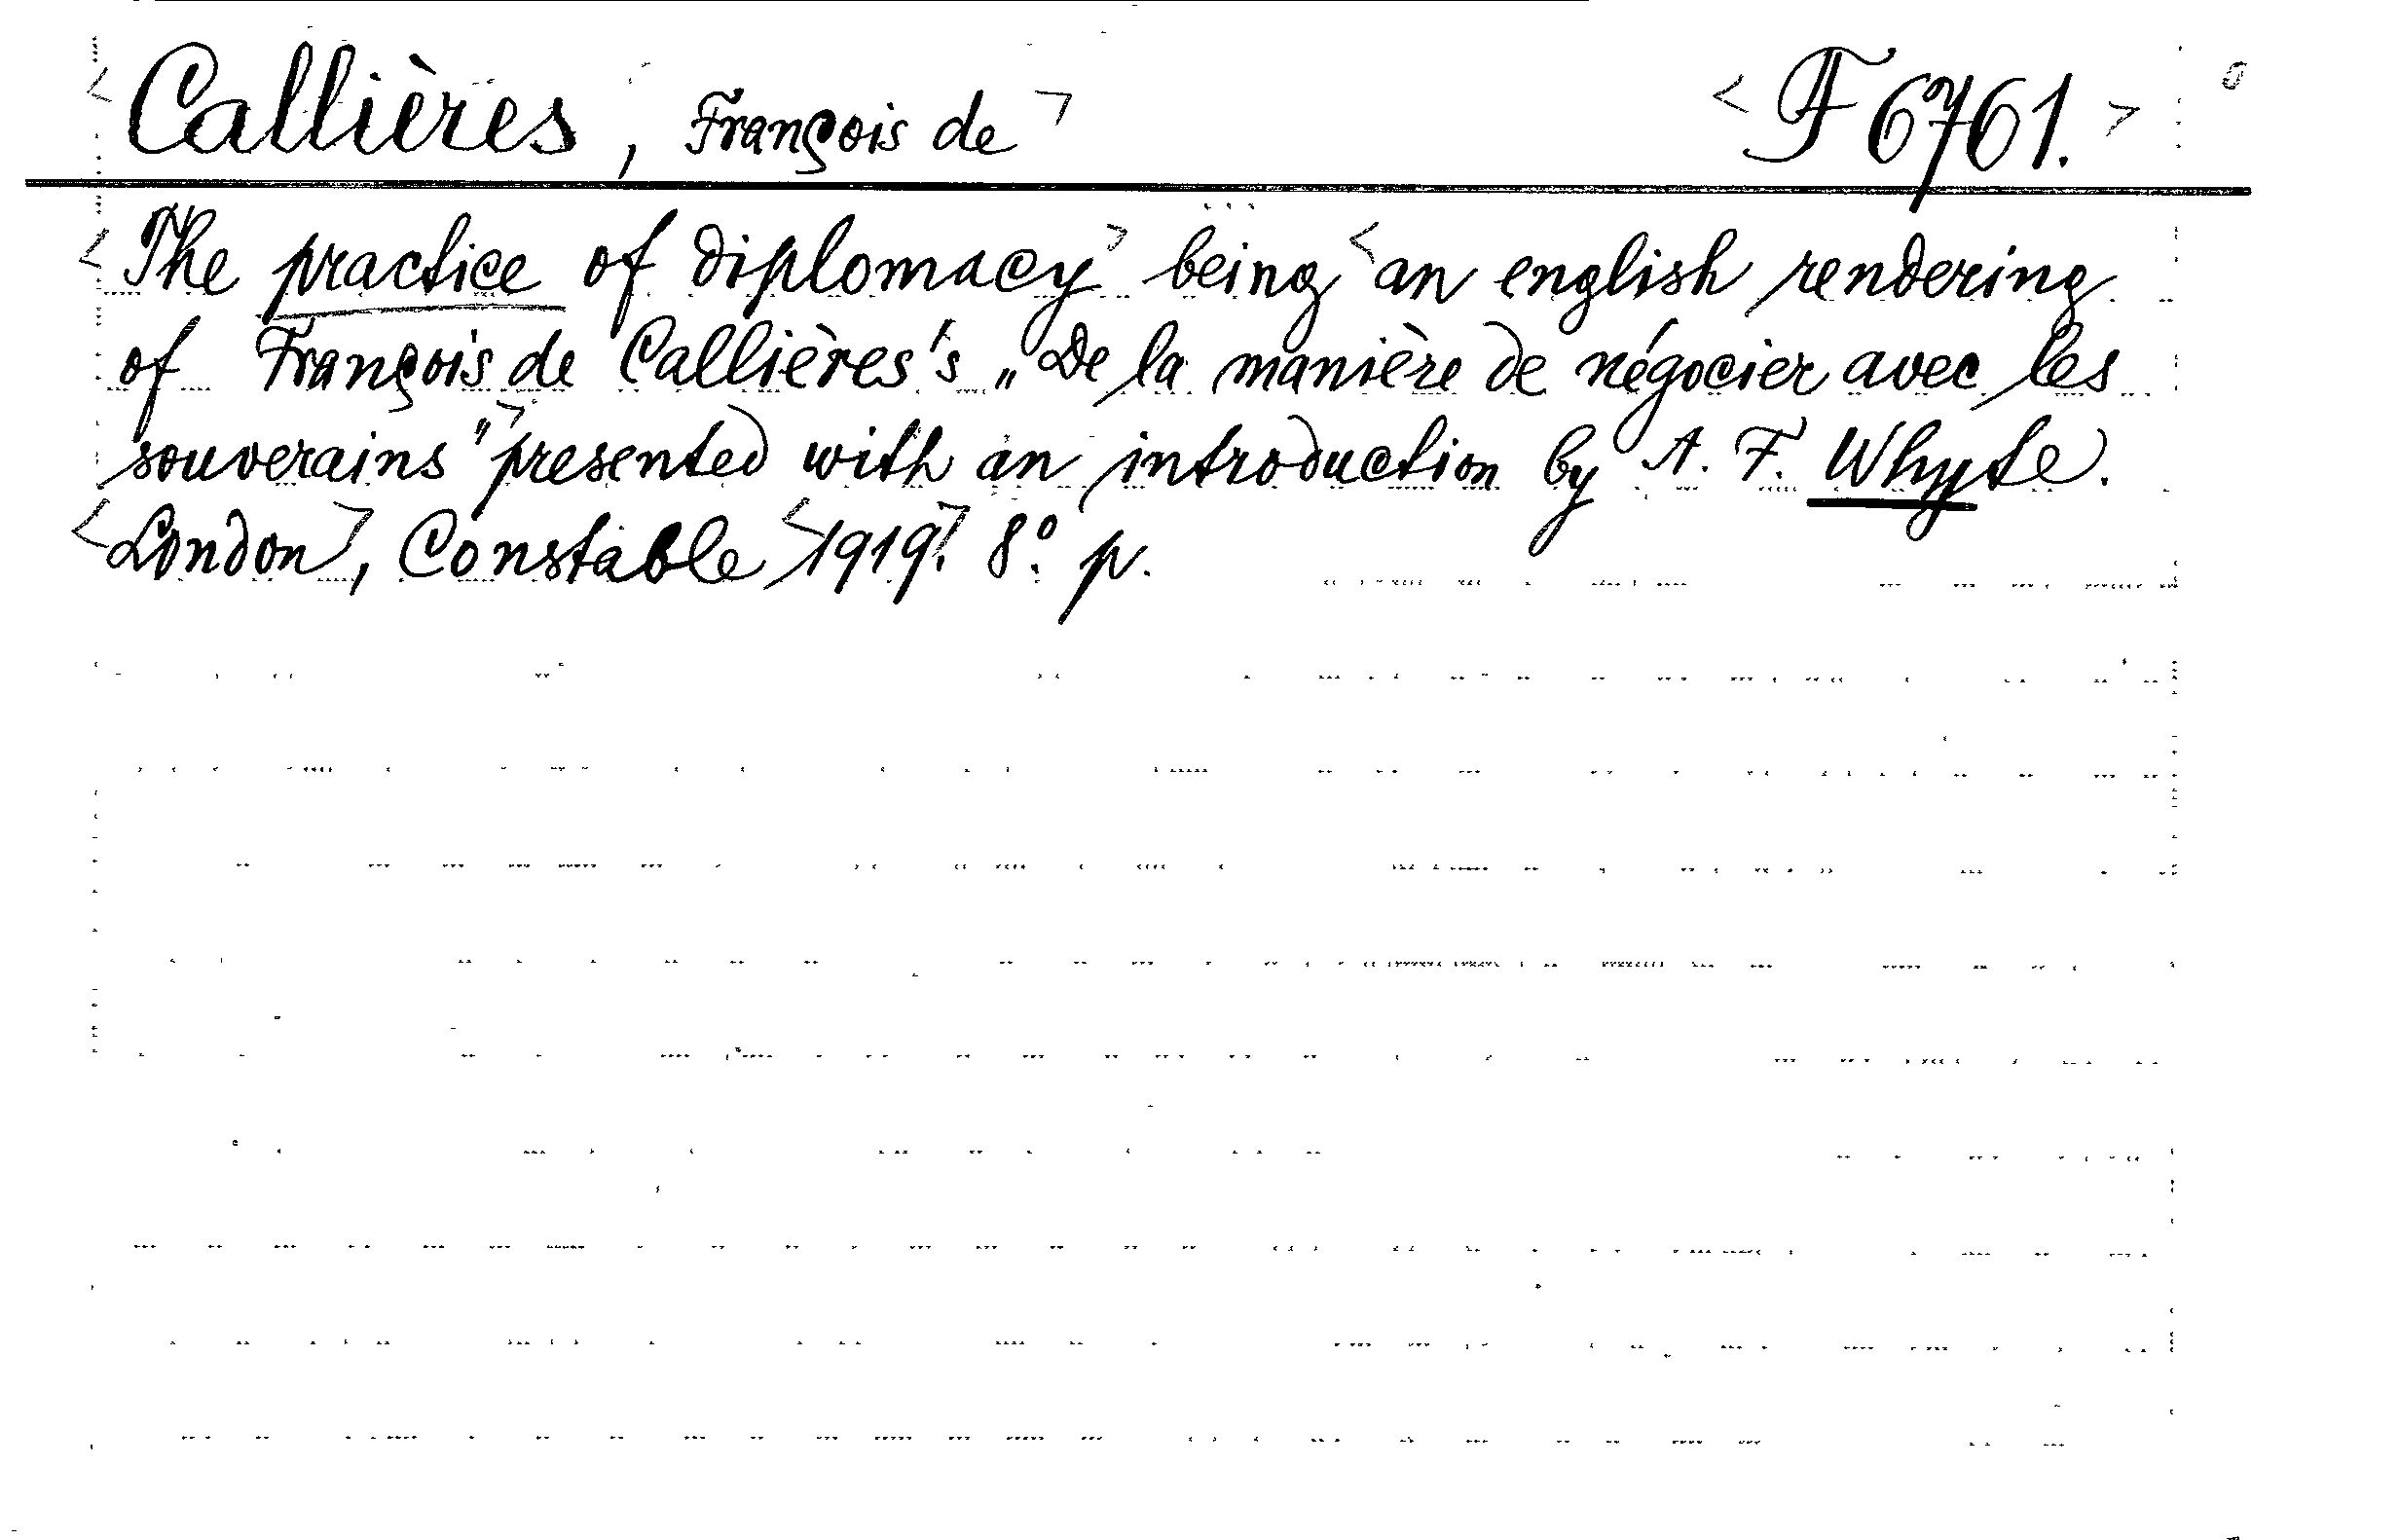 <Callières, François de> <F 6761.>
<The practice of diplomacy> being <an english rendering
of François de Callières's „De la manière de négocier avec les
souverains"> presented with an introduction by A. F. Whyte.
<London>, Constable <1919>. 8° p.